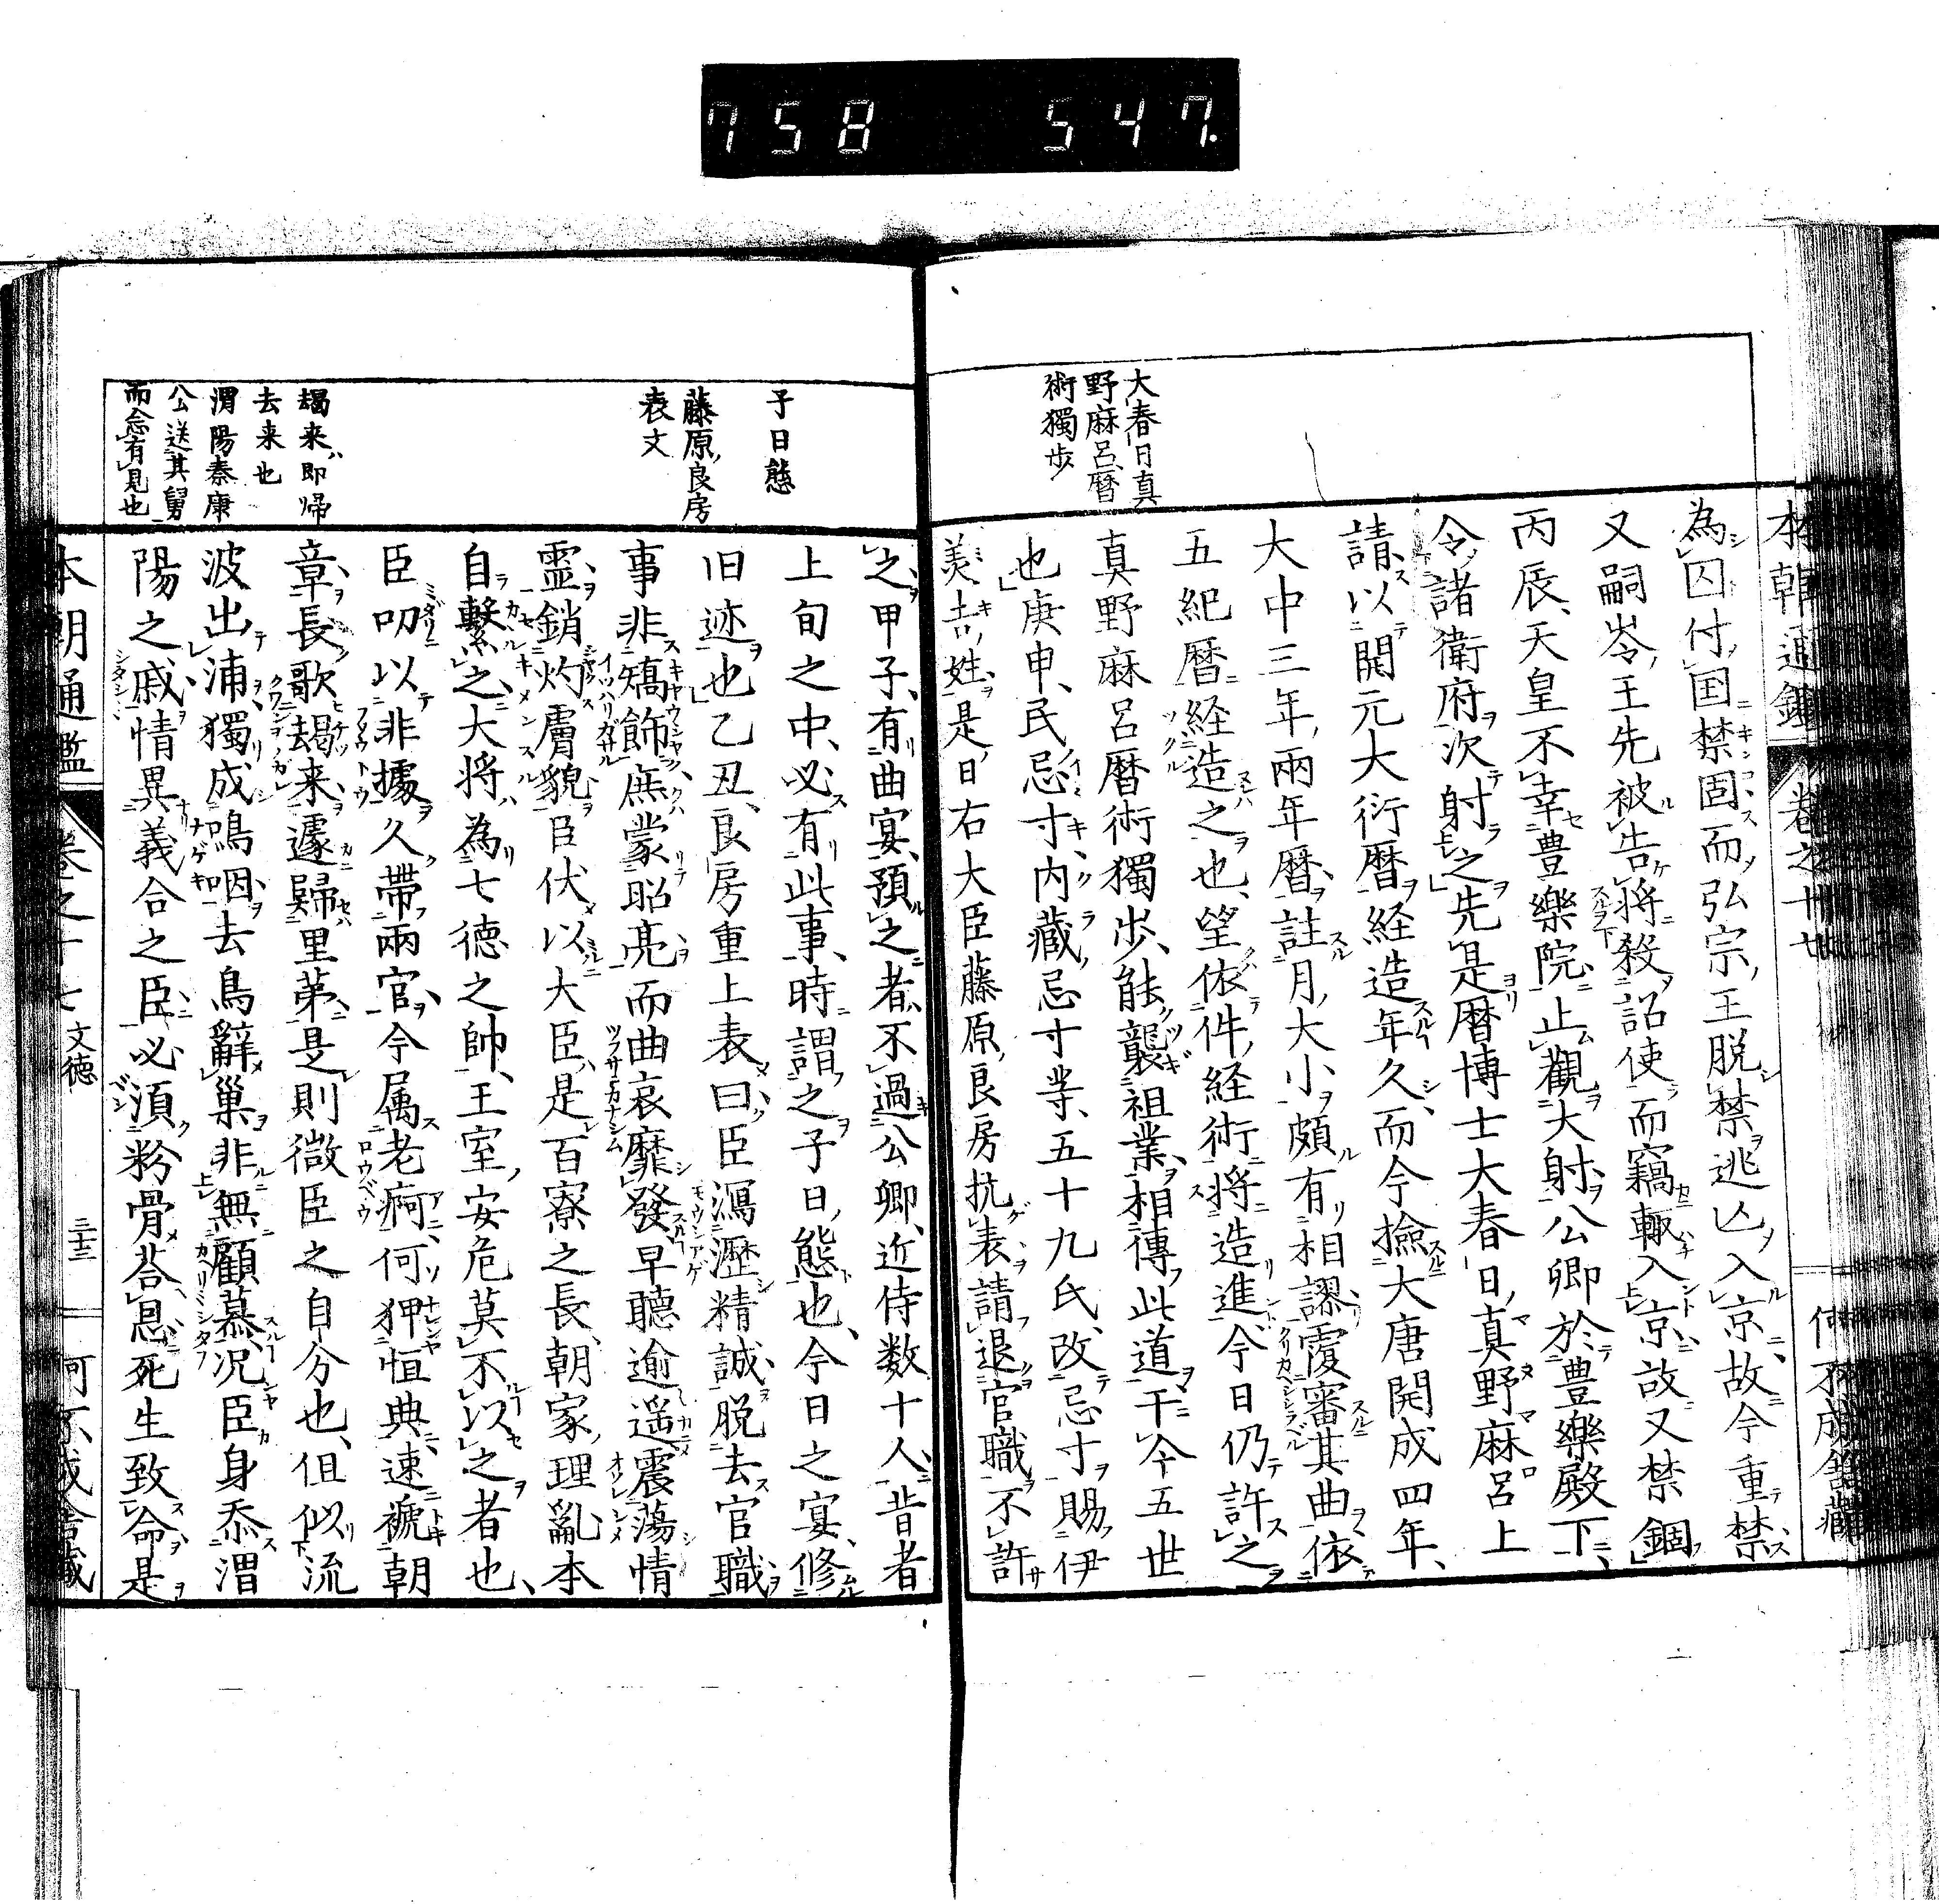 758 547.
本朝通鑑 卷之十七 何不成舎蔵
大春日真
野麻呂暦
術獨步
為囚付国禁固而弘宗王脱禁逃亾入京故今重禁
又嗣岑王先被告将殺詔使而竊輙入京故又禁錮
丙辰天皇不幸豊樂院止觀大射公卿於豊樂殿下
令諸衛府次射之先是暦博士大春日真野麻呂上
請以開元大衍暦経造年久而今撿大唐開成四年
大中三年兩年暦註月大小頗有相謬覆審其曲依
五紀暦経造之也望依件経術将造進今日仍許之
真野麻呂暦術獨歩能襲祖業相傳此道干今五世
也庚申民忌寸内藏忌寸等五十九氏改忌寸賜伊
美吉姓是日右大臣藤原良房抗表請退官職不許
子日態
藤原良房
表文
朅来ハ即帰
去来也
渭陽秦康
公送其舅
而念有見也
之甲子有曲宴預之者不過公卿近侍数十人昔者
上旬之中必有此事時謂之子日態也今日之宴修
旧迹也乙丑良房重上表曰臣瀉瀝精誠脱去官職
事非矯飾庶蒙昭亮而曲哀靡發早聽逾遥震蕩情
靈銷灼膚貌臣伏以大臣是百寮之長朝家理亂本
自繫之大将為七徳之帥王室安危莫不以之者也
臣叨以非據久帶兩官今属老痾何狎恒典速褫朝
章長歌朅来遽歸里第是則微臣之自分也但似流
波出浦獨成鳴咽去鳥辭巢非無顧慕况臣身忝渭
陽之戚情異義合之臣必湏粉骨荅恩死生致命是
本朝通鑑 卷之十七 文徳 三十三 何不成舎蔵